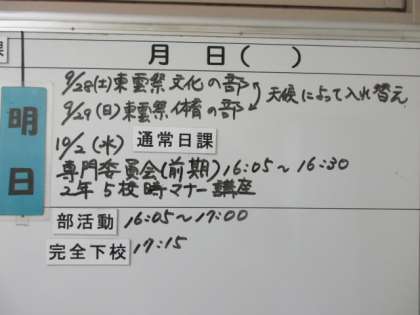 月 日( )
9/28(土)東雲祭文化の部
9/29(日)東雲祭体育の部
天候によって入れ替え
明日
10/2(水) 通常日課
専門委員会(前期)16:05~16:30
2年5校時マナー講座
部活動 16:05~17:00
完全下校 17:15